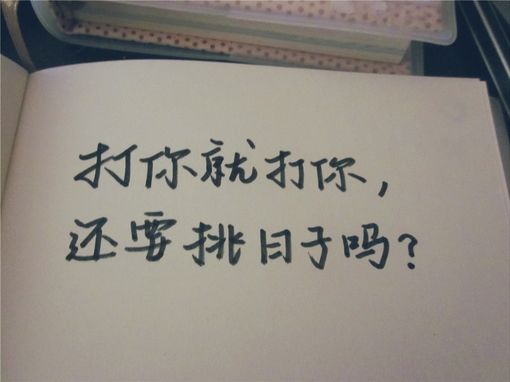 打你就打你，
还要挑日子吗？